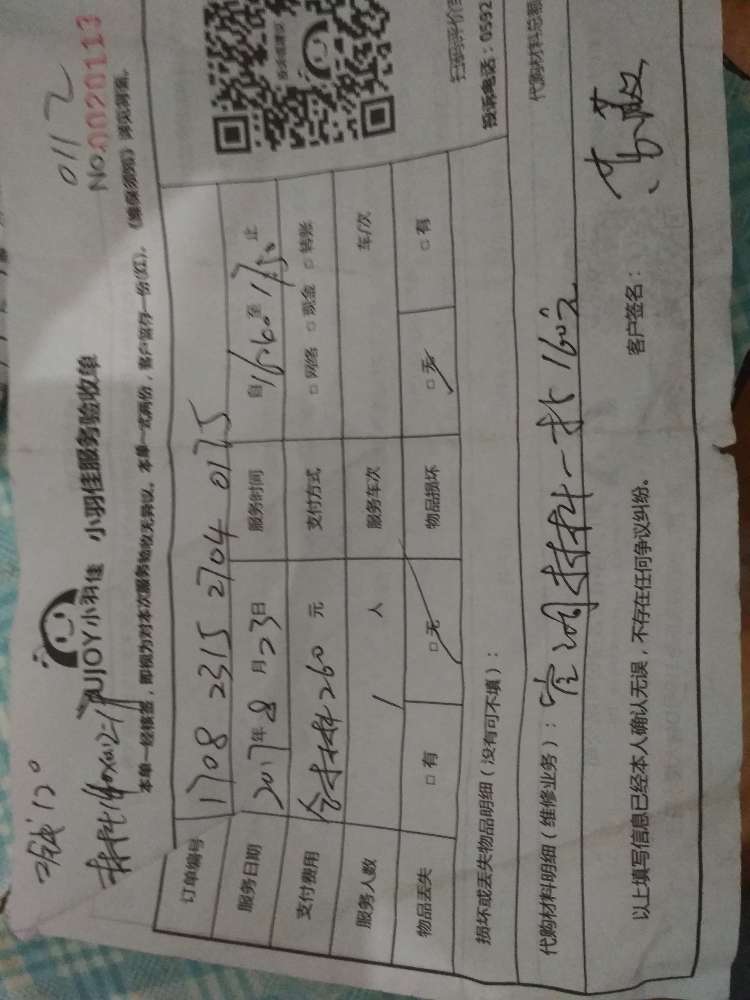 0112
No.0020113
UJOY小羽佳 小羽佳服务验收单
本单一经核签，即视为对本次服务验收无异议。本单一式两份，客户留存一份(红)。《维保须知》详见背面。
订单编号 1708 2315 2704 0175
服务日期 2017年8月23日 服务时间 自 至 止
支付费用 含材料260元 支付方式 □网络 □现金 □转账
服务人数 1 人 服务车次 车/次
物品丢失 □有 □无 物品损坏 □无 □有
损坏或丢失物品明细（没有可不填）：
扫码评价
投诉电话：0592
代购材料明细（维修业务）：空调材料一批160元
代购材料总额
以上填写信息已经本人确认无误，不存在任何争议纠纷。
客户签名：